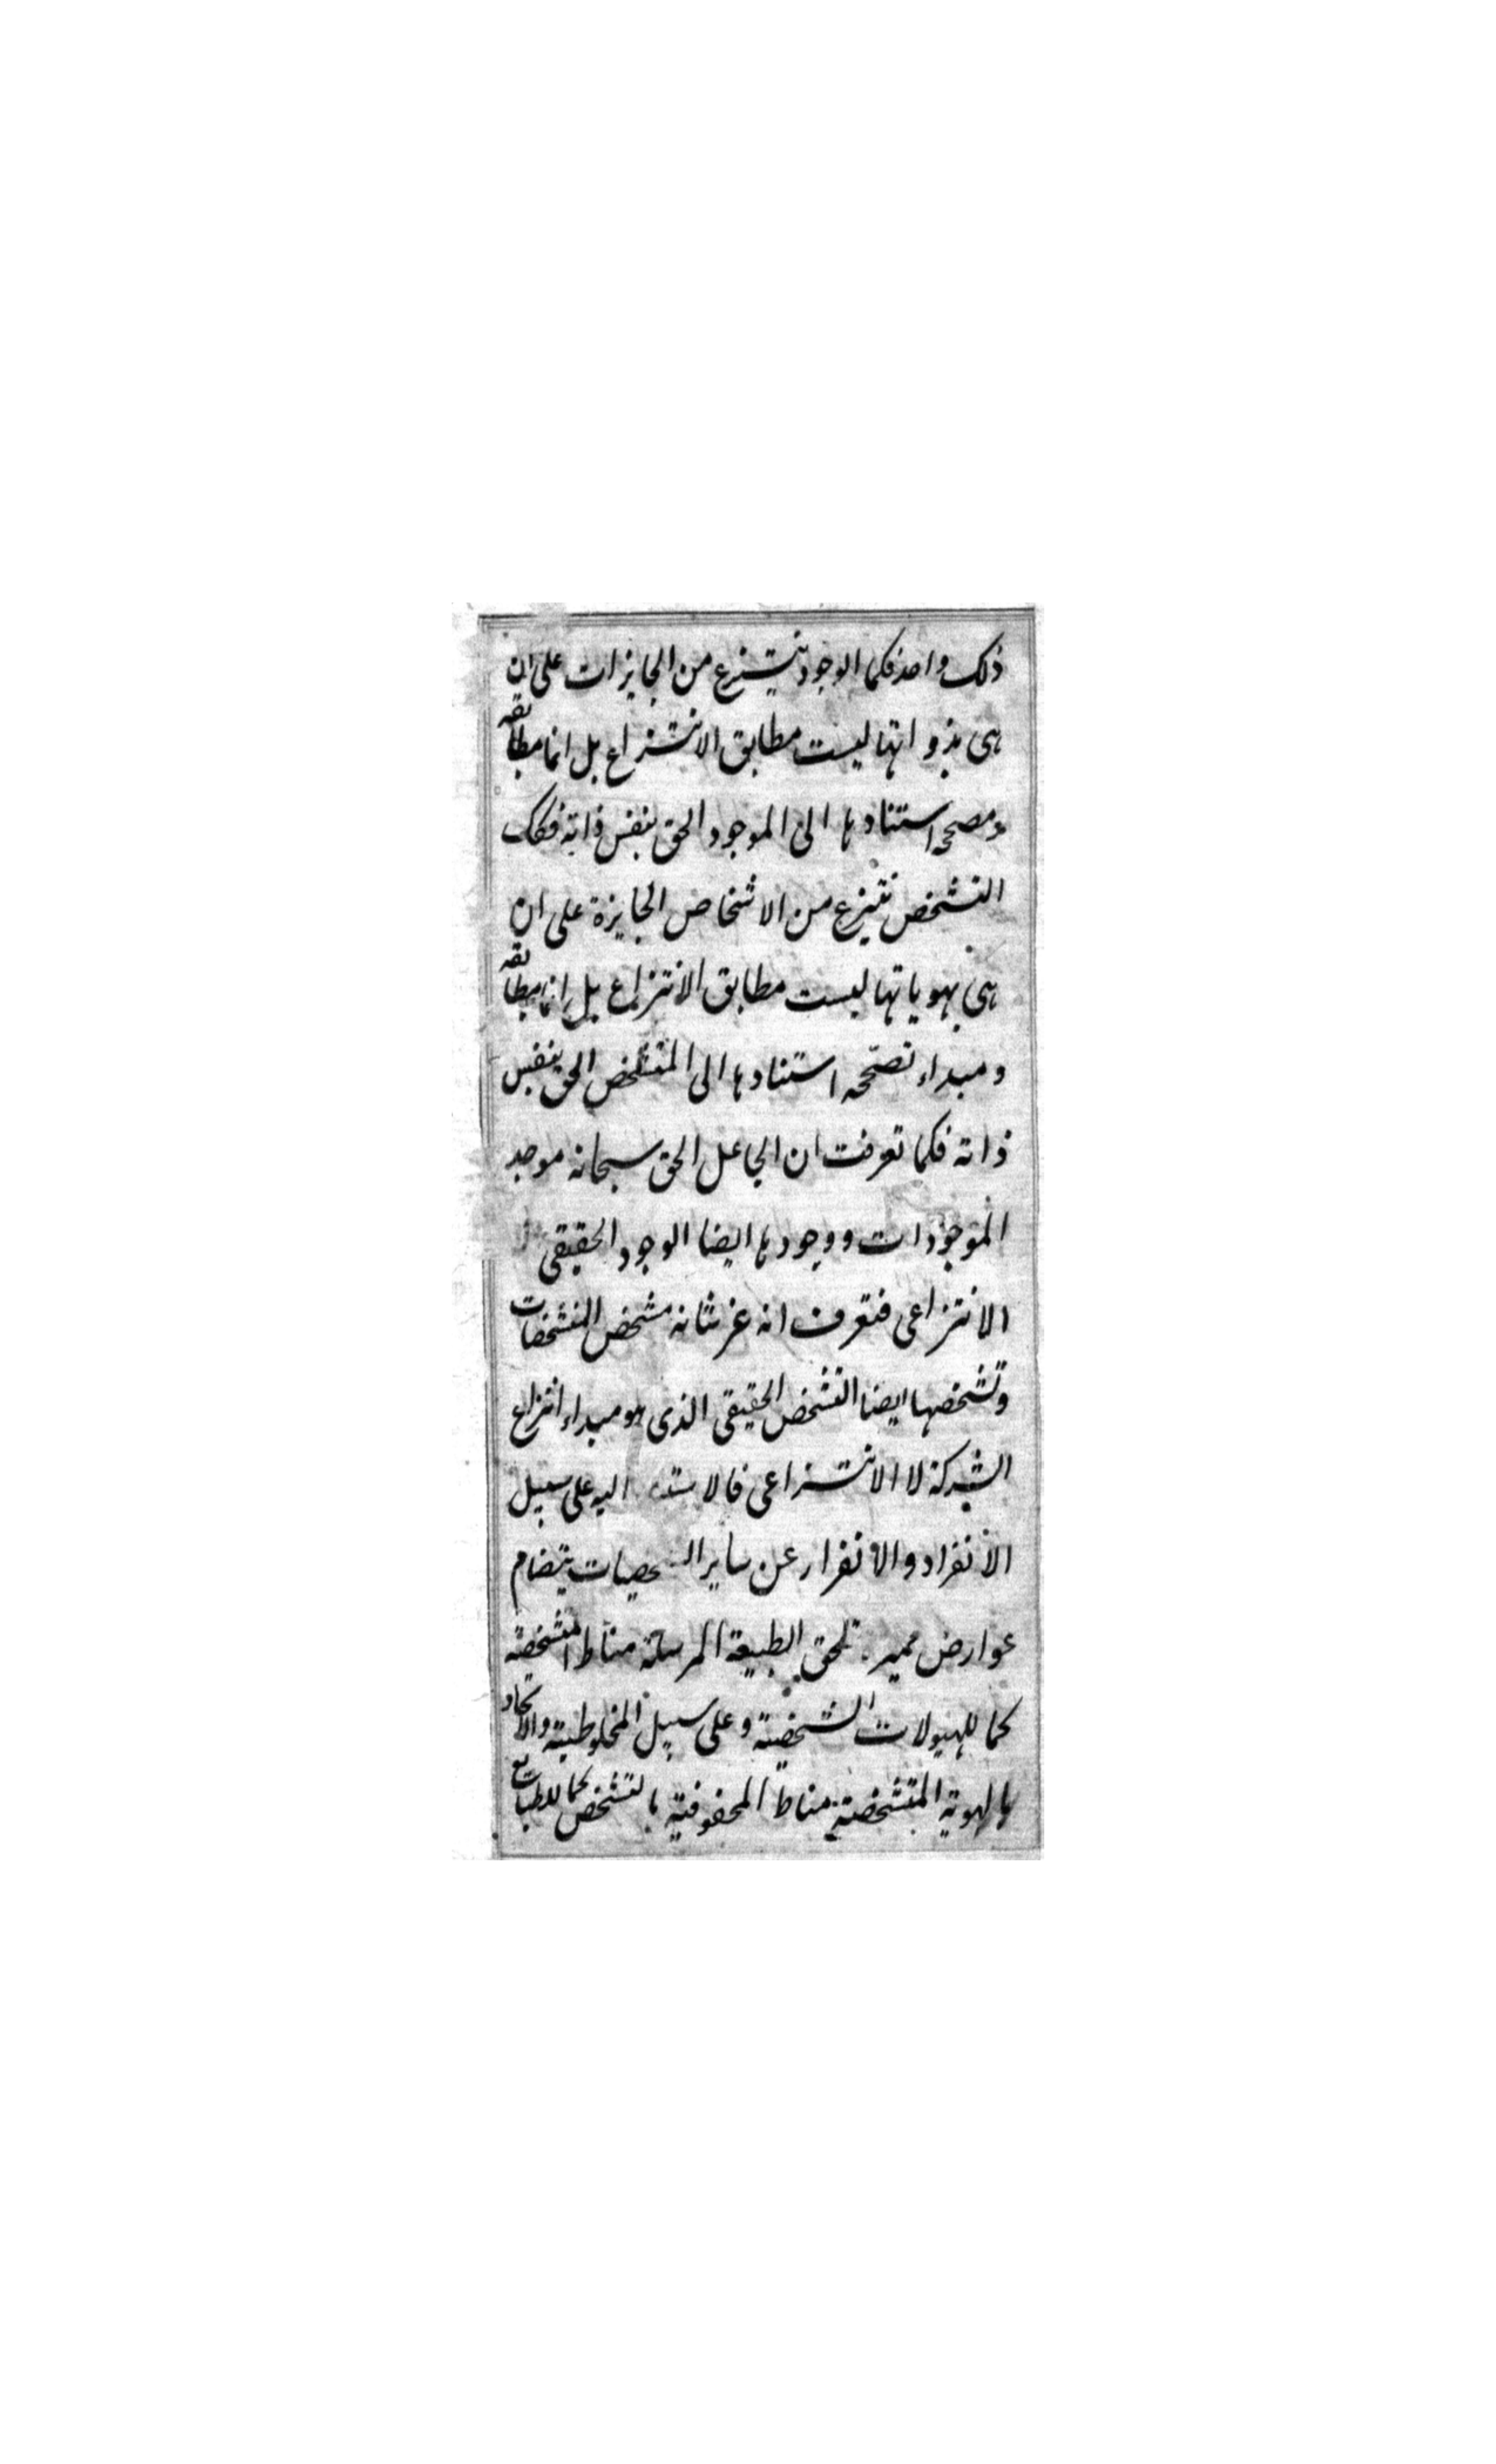 ذلك واحد فكما الوجود ينتزع من الجايزات على ان
هى بذواتها ليست مطابق الانتزاع بل انما مطابقه
ومصححه استنادها الى الموجود الحق بنفس ذاته فكك
التشخص ينتزع من الاشخاص الجايزة على ان
هى بهوياتها ليست مطابق الانتزاع بل انما مطابقه
ومبداء تصححه استنادها الى المتشخص الحق بنفس
ذاته فكما تعرفت ان الجاعل الحق سبحانه موجد
الموجودات ووجودها ايضا الوجود الحقيقى
الانتزاعى فتعرف انه عز شانه مشخص المتشخصات
وتشخصها ايضا التشخص الحقيقى الذى هو مبداء انتزاع
الشركة لا الانتزاعى فالاستناد اليه على سبيل
الانفراد والانفراز عن ساير بتضام
عوارض تلحق الطبيعة المرسلة مناط المتشخصية
كما للهيولات الشخصية وعلى سبيل المخلوطية والاتحاد
بالهوية المتشخصة مناط المحفوفية بالتشخص كما للطبايع